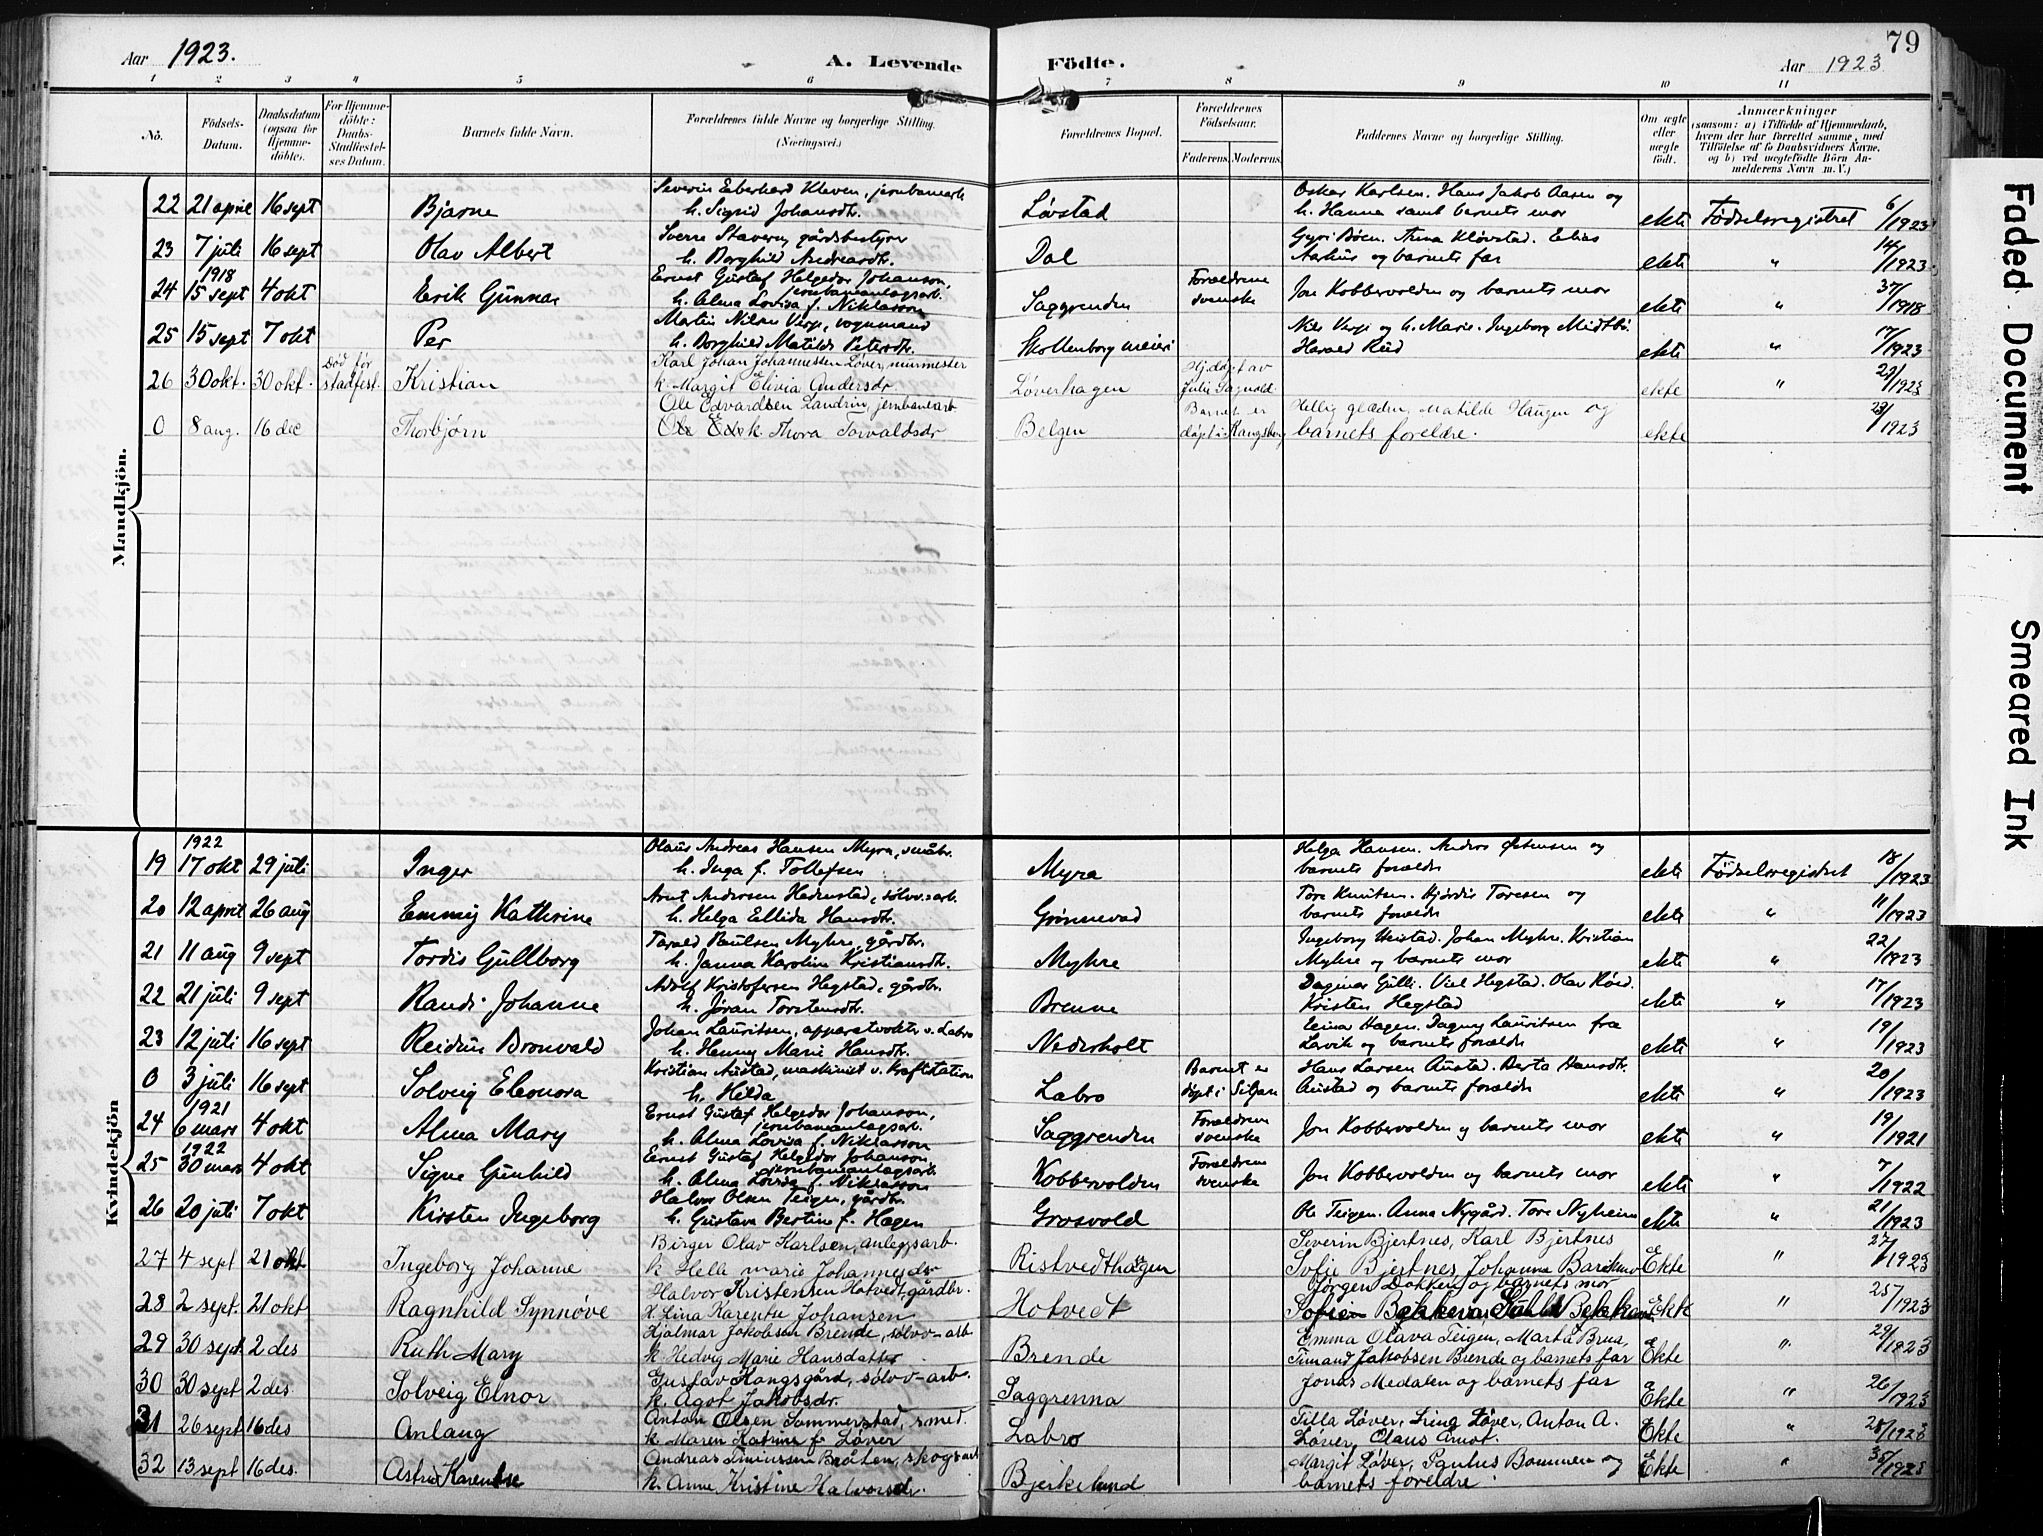 79
Aar 1923.
A. Levende Födte.
Aar 1923
1 2 3 4 5 6 7 8 9 10 11
No.
Fødsels-Datum.
Daabsdatum (ogsaa for Hjemme-döbte).
For Hjemme-döbte: Daabs-Stadfæstel-ses Datum.
Barnets fulde Navn.
Forældrenes fulde Navne og borgerlige Stilling. (Næringsvei.)
Forældrenes Bopæl.
Forældrenes Födselsaar.
Faderens. Moderens.
Faddernes Navne og borgerlige Stilling.
Om ægte eller uægte födt.
Anmærkninger (saasom: a) i Tilfælde af Hjemmedaab, hvem der har forrettet samme, med Tilföielse af to Daabsvidners Navne, og b) ved uægtefödte Börn An-melderens Navn m. V.)
Mandkjön.
22 21 april 16 sept Bjarne Severin Eberhard Kleven, jernbanearb. h. Sigrid Johansdtr. Løvstad Oskar Karlsen. Hans Jakob Aasen og h. Hanna samt barnets mor ekte Fødselsregistret 6/1923
23 7 juli 16 sept Olav Albert Sverre Stavern, gårdsbestyrer h. Borghild Andreasdtr. Dal Gyri Bøen. Anna Kløvstad. Elias Aarhus og barnets far ekte " 14/1923
24 1918 15 sept 4 okt Erik Gunnar Ernst Gustaf Helgedor Johanson, jernbaneanlagsarb. h. Alma Lovisa f. Niklasson Saggrenden Foreldrene svenske Jon Kobbervolden og barnets mor ekte " 37/1918
25 15 sept 7 okt Per Martin Nilsen Verp, vognmand h. Borghild Matilde Petersdtr. Skollenborg meieri Nils Verp og h. Marie. Ingeborg Midtbø. Harald Ruud ekte " 17/1923
26 30 okt. 30 okt. Død før stadfest. Kristian Karl Johan Johannessen Løver, murmester k. Margit Olivia Andersdr Løverhagen Hj.døpt av Julie Sagvold ekte " 22/1923
0 8 aug. 16 dec Thorbjørn Ole Edvardsen Landrin, jernbanearb k. Thora Torvaldsdr Belgen Barnet er døpt i Kongsberg Hellig Glædin, Matilde Haugen og barnets foreldre. ekte 23/1923
Kvindekjön
19 1922 17 okt 29 juli Inger Olaus Andreas Hansen Myra, småbr. h. Inga f. Tollefsen Myra Helga Hansen. Anders Østensen og barnets foreldre ekte Fødselsregistret 18/1923
20 12 april 26 aug Emmy Kathrine Arnt Andersen Hedenstad, sølvv.arb. h. Helga Ellida Hansdtr. Grønnevad Tore Knutsen. Hjørdis Toresen og barnets foreldre ekte " 11/1923
21 11 aug 9 sept Tordis Gullborg Tarald Paulsen Myhre, gårdbr. h. Janna Karoline Kristiansdtr. Myhre Ingeborg Heistad. Johan Myhre. Kristian Myhre og barnets mor ekte " 22/1923
22 21 juli 9 sept Randi Johanne Adolf Kristofersen Hegstad, gårdbr. h. Jøran Torstensdtr. Brenne Dagmar Gulli. Viel Hegstad. Olav Røed. Kristen Hegstad ekte " 17/1923
23 12 juli 16 sept Reidun Bronvald Johan Lauritsen, apparatvokter v. Labro h. Henny Marie Hansdtr. Nederholt Einar Hagen. Dagny Lauritsen fra Larvik og barnets foreldre ekte " 19/1923
0 3 juli 16 sept Solveig Eleonora Kristian Austad, maskinist v. Kraftstation h. Hilda Labro Barnet er døpt i Siljan Hans Larsen Austad. Berta Hansdtr. Austad og barnets foreldre ekte " 20/1923
24 1921 6 mars 4 okt Alma Mary Ernst Gustaf Helgedor Johanson, jernbaneanlagsarb. h. Alma Lovisa f. Niklasson Saggrenden Foreldrene svenske Jon Kobbervolden og barnets mor ekte " 19/1921
25 1922 30 mars 4 okt Signe Gunhild Ernst Gustaf Helgedor Johanson, jernbaneanlagsarb. h. Alma Lovisa f. Niklasson Kobbervolden Foreldrene svenske Jon Kobbervolden og barnets mor ekte " 7/1922
26 20 juli 7 okt Kirsten Ingeborg Halvor Olsen Teigen, gårdbr. h. Gustava Bertine f. Hagen Grosvold Ole Teigen. Anna Nygård. Tore Nyheim ekte " 21/1923
27 4 sept 21 okt Ingeborg Johanne Birger Olav Karlsen, anlegsarb. k. Helle Marie Johannesdr Ristvedthagen Severin Bjertnes, Karl Bjertnes Sofie Bjertnes, Johanna Ekte " 27/1923
28 2 sept. 21 okt Ragnhild Synnøve Halvor Kristensen Hotvedt gårdbr. K. Lina Karentse Johansen Hotvedt Jørgen Dokken og barnets mor Sofie Bekkevar Bekkevar. Ekte " 25/1923
29 30 sept. 2 des Ruth Mary Hjalmar Jakobsen Brende, sølvv-arb k. Hedvig Marie Hansdatter Brende Emma Olava Teigen, Marta Brua, Timand Jakobsen Brende og barnets far Ekte " 29/1923
30 30 sept 2 des. Solveig Elnor Gustav Kongsgård, sølvv-arb. k. Ågot Jakobsdr. Saggrenna Jonas Medalen og barnets far Ekte " 26/1923
31 26 sept. 16 des Anlaug Anton Olsen Sommerstad, smed. k. Maren Katrine f. Løver Labro Tilla Løver, Irina Løver, Anton A. Løver, Olaus Amot. Ekte " 28/1923
32 13 sept 16 des. Astrid Karentse Andreas Simensen Bråten, skogsarb k. Anne Kristine Halvorsdr. Bjerkelund Margit Løver, Bommen og barnets foreldre Ekte " 35/1923
Faded Document
Smeared Ink